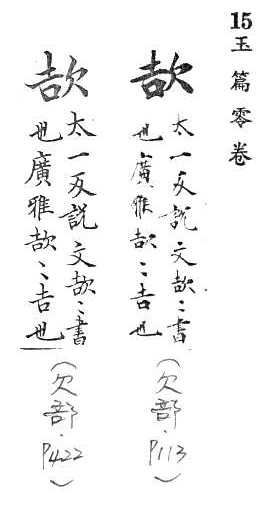 15玉篇零卷
欯
太一反說文欯〻書
也廣雅欯〻吉也
（欠部．P113）
欯
太一反說文欯〻書
也廣雅欯〻吉也
（欠部．P422）